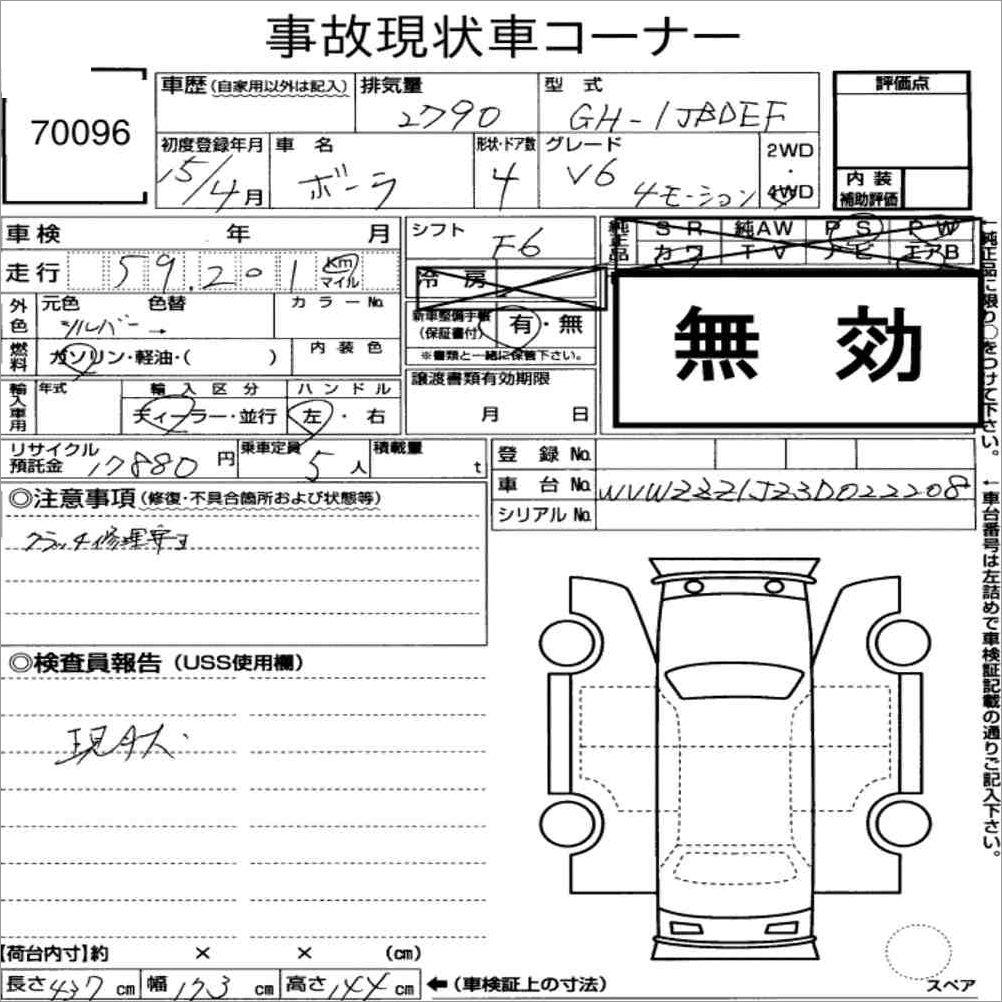 事故現状車コーナー
70096
車歴(自家用以外は記入) 排気量 型 式 評価点
2790 GH-1JBDEF
初度登録年月 車 名 形状・ドア数 グレード 2WD
15/4月 ボーラ 4 V6 4モーション ・ 4WD
内装
補助評価
車検 年 月 シフト F6
純正品 SR 純AW PS PW
カワ TV ナビ エアB
走行 59,201 Km
マイル
冷房
外色 元色 色替 カラーNo.
シルバー →
新車整備手帳
(保証書付) 有・無
※書類と一緒に保管下さい。
無 効
燃料 ガソリン・軽油・( ) 内装色
輸入車用 年式 輸入区分 ハンドル
ディーラー・並行 左・右
譲渡書類有効期限
月 日
リサイクル
預託金 17880円 乗車定員 5人 積載量 t
登録 No.
車台 No. WVWZZZ1JZ3D022208
シリアル No.
◎注意事項(修復・不具合箇所および状態等)
クラッチ修理要ス
◎検査員報告(USS使用欄)
現状
←純正品に限り○をつけて下さい。
←車台番号は左詰めで車検証記載の通りご記入下さい。
【荷台内寸】約 × × (cm)
長さ437cm 幅173cm 高さ144cm ←(車検証上の寸法)
スペア